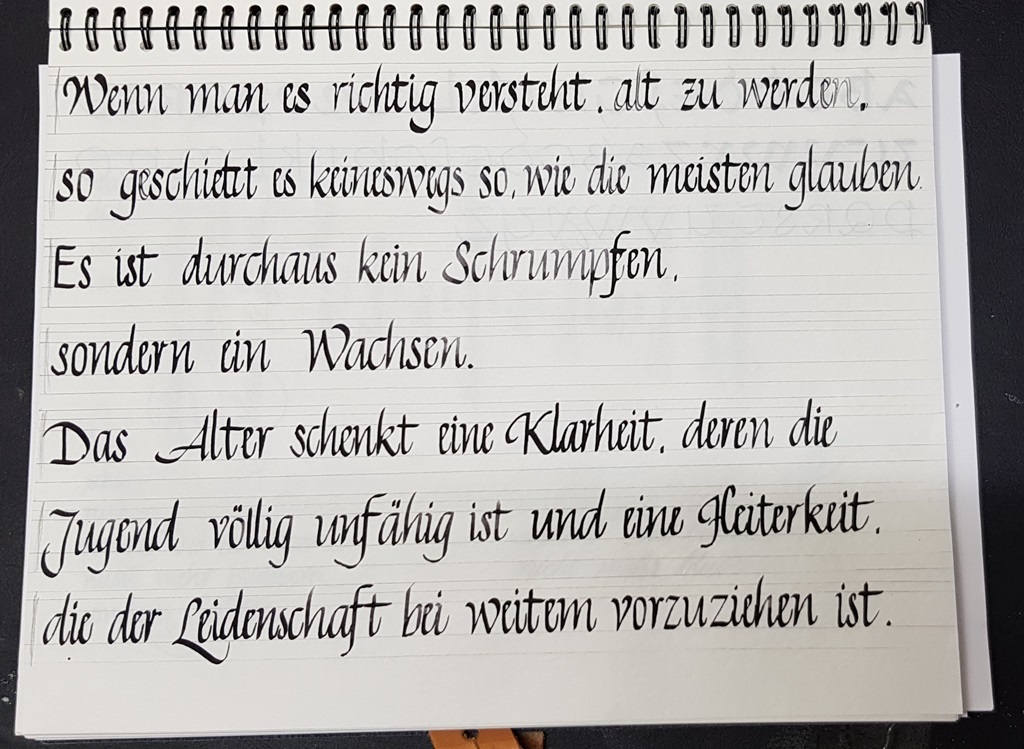 Wenn man es richtig versteht, alt zu werden,
so geschieht es keineswegs so, wie die meisten glauben.
Es ist durchaus kein Schrumpfen,
sondern ein Wachsen.
Das Alter schenkt eine Klarheit, deren die
Jugend völlig unfähig ist und eine Heiterkeit,
die der Leidenschaft bei weitem vorzuziehen ist.